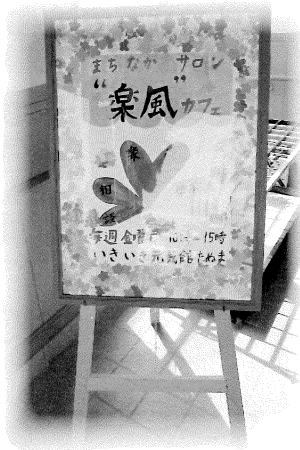 まちなか サロン
"楽風"カフェ
相
毎週金曜日 10時～15時
いきいき元気館たぬま